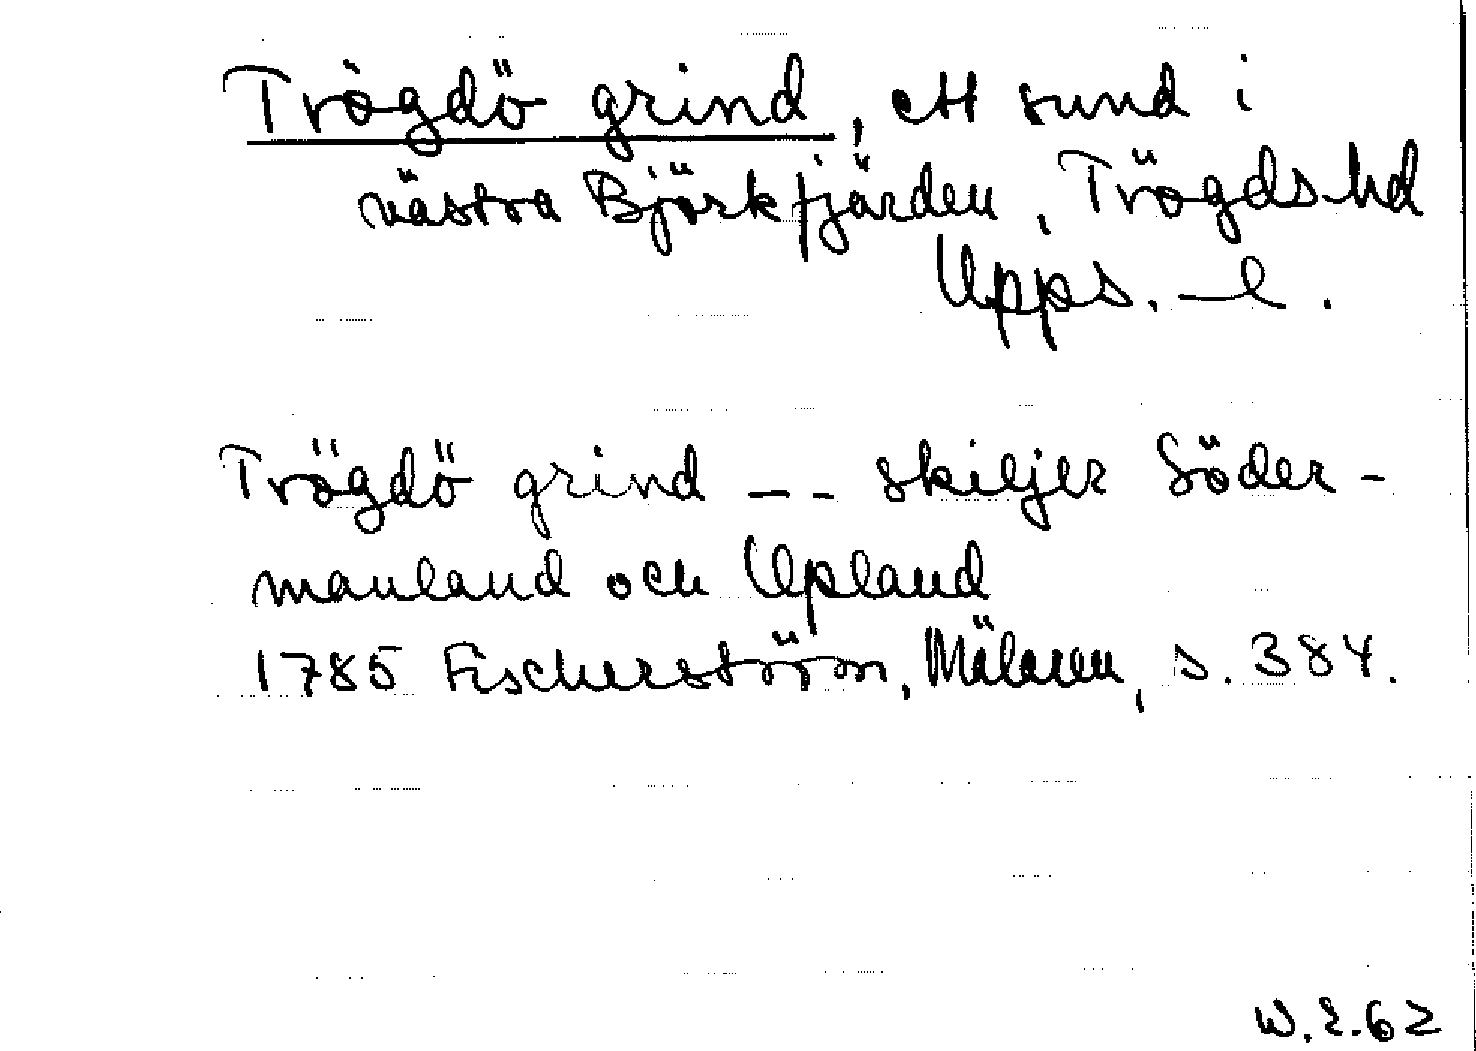 Trögdö grind, ett sund i
västra Björkfjärden, Trögds hd
Upps. l.
Trögdö grind -- skiljer Söder-
manland och Upland
1785 Fischerström, Mälaren, s. 384.
W.2.62